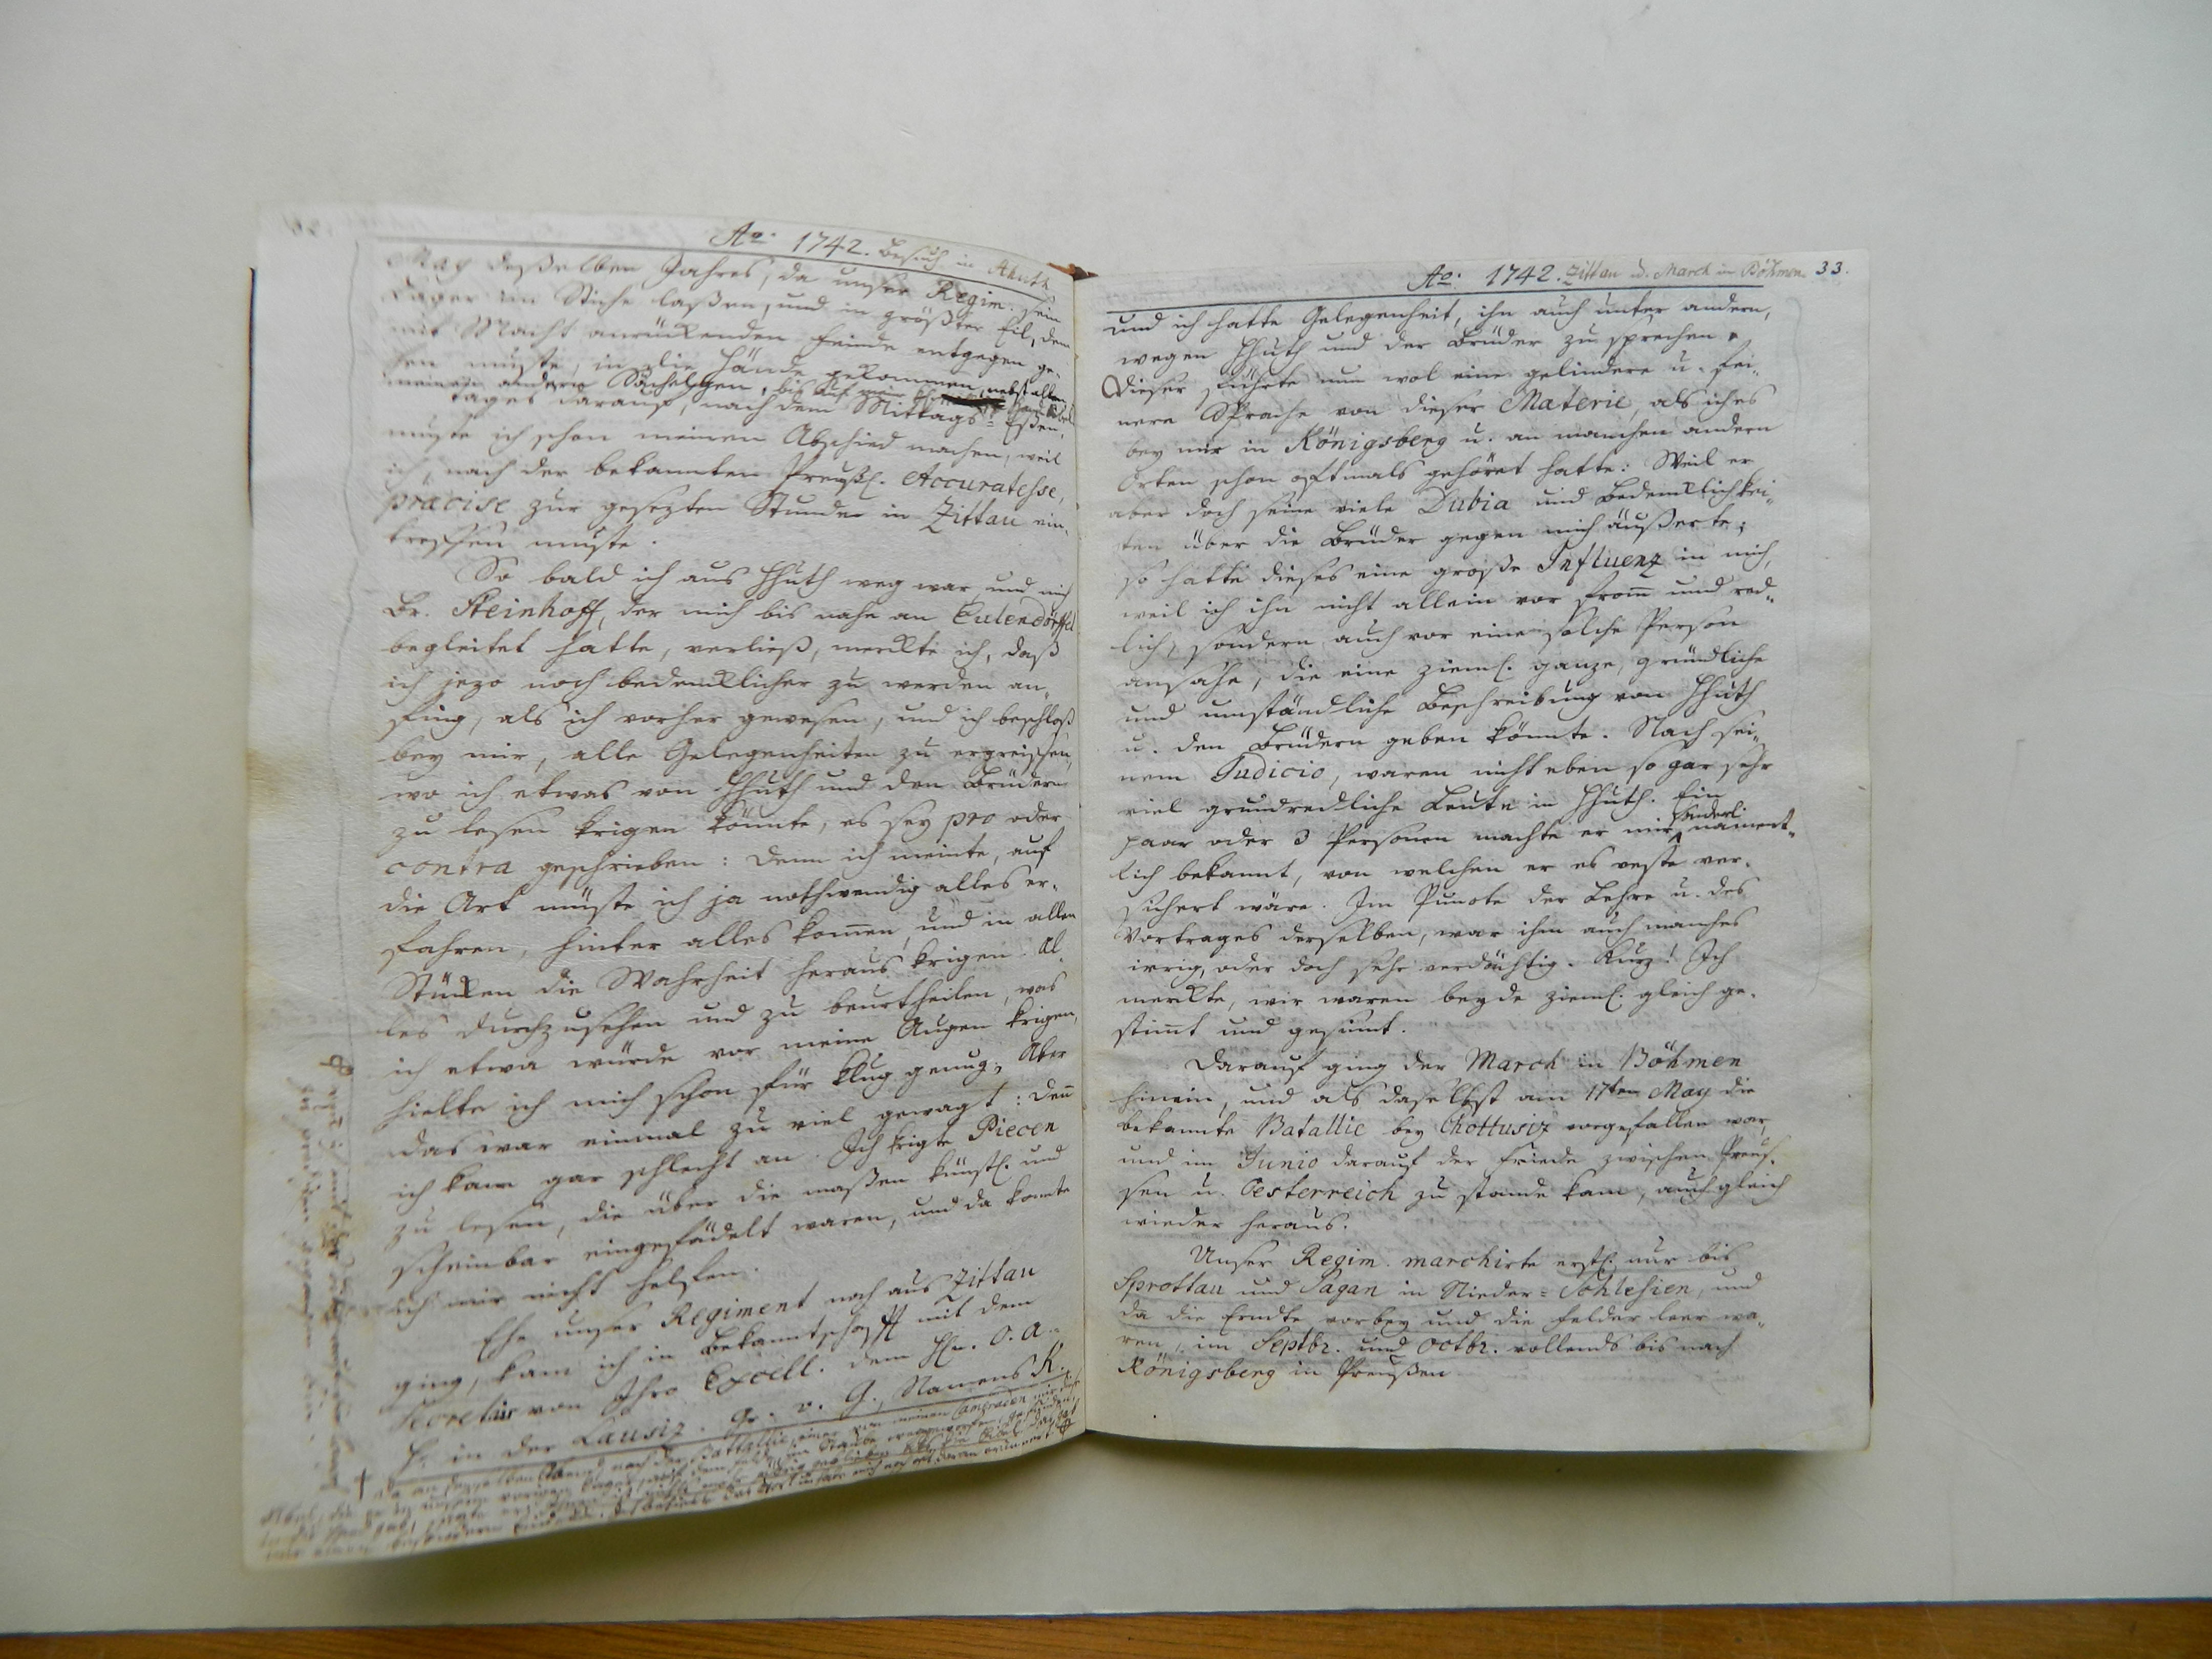 Ao. 1742. Besuch in Hhuth
May deßelben Jahres, da unser Regim. sein
Lager im Stiche laßen, und in größter Eil, dem
mit Macht anrückenden Feinde entgegen ge-
hen muste, in die Hände gekommen, nebst allen
meinen andern Sächelgen, bis auf mein Handbibel
Tages darauf, nach dem Mittags-Eßen,
muste ich schon meinen Abschied machen, weil
ich, nach der bekannten Preußl. Accuratesse,
præcise zur gesezten Stunde in Zittau ein-
treffen muste.
So bald ich aus Hhuth weg war, und mich
Br. Steinhoff, der mich bis nahe an Eulendörffel
begleitet hatte, verließ, merckte ich, daß
ich jezo noch bedencklicher zu werden an-
fing, als ich vorher gewesen, und ich beschloß
bey mir, alle Gelegenheiten zu ergreiffen,
wo ich etwas von Hhuth und den Brüdern
zu lesen krigen könnte, es sey pro oder
contra geschrieben: denn ich meinte, auf
die Art müste ich ja nothwendig alles er-
fahren, hinter alles kom̅en, und in allen
Stücken die Wahrheit heraus krigen. Al-
les durchzusehen und zu beurtheilen, was
ich etwa würde vor meine Augen krigen,
hielte ich mich schon für klug genug. Aber
das war einmal zu viel gewagt: den̅
ich kam gar schlecht an. Ich krigte Piecen
zu lesen, die über die maßen künstl. und
scheinbar eingefädelt waren, und da konte
ich mir nicht helfen.
Ehe unser Regiment noch aus Zittau
ging, kam ich in Bekanntschafft mit dem
Secretair von Ihro Excell. dem Hn. O. A.
H. in der Lausiz. Gr. v. G., Namens K.
Ao. 1742. Zittau u. March in Böhmen. 33.
und ich hatte Gelegenheit, ihn auch unter andern,
wegen Hhuth und der Brüder zu sprechen.
Dieser führte nun wol eine gelindere u. fei-
nere Sprache von dieser Materie, als ich es
bey mir in Königsberg u. an manchen andern
Orten schon oftmals gehöret hatte: Weil er
aber doch seine viele Dubia und Bedencklichkei-
ten über die Brüder gegen mich äußerte;
so hatte dieses eine große Influenz in mich,
weil ich ihn nicht allein vor from̅ und red-
lich, sondern auch vor eine solche Person
ansahe, die eine zieml. ganze, gründliche
und umständliche Beschreibung von Hhuth
u. den Brüdern geben könnte. Nach sei-
nem Judicio, waren nicht eben so gar sehr
viel grundredliche Leute in Hhuth. Ein
paar oder 3 Personen machte er mir sonderl. nament-
lich bekannt, von welchen er es veste ver-
sichert wäre. Im Puncte der Lehre u. des
Vortrages derselben, war ihm auch manches
irrig, oder doch sehr verdächtig. Kurz! Ich
merckte, wir waren beyde zieml. gleich ge-
stim̅t und gesinnt.
Darauf ging der March in Böhmen
hinein, und als daselbst am 17ten May die
bekannte Batallie bey Chottusiz vorgefallen war,
und im Junio darauf der Friede zwischen Preus-
sen u. Oesterreich zu stande kam, auch gleich
wieder heraus.
Unser Regim. marchirte erstl. nur bis
Sprottau und Sagan in Nieder-Schlesien, und
da die Erndte vorbey und die Felder leer wa-
ren, im Septbr. und Octbr. vollends bis nach
Königsberg in Preußen